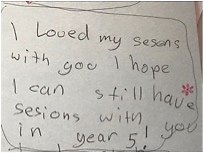 I Loved my sesons
with you I hope
I can still have
sesions with you
in year 5!